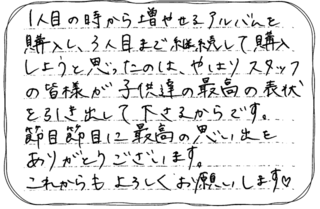 1人目の時から増やせるアルバムを
購入し、3人目まで継続して購入
しようと思ったのは、やはりスタッフ
の皆様が子供達の最高の表状
を引き出して下さるからです。
節目節目に最高の思い出を
ありがとうございます。
これからもよろしくお願いします♡